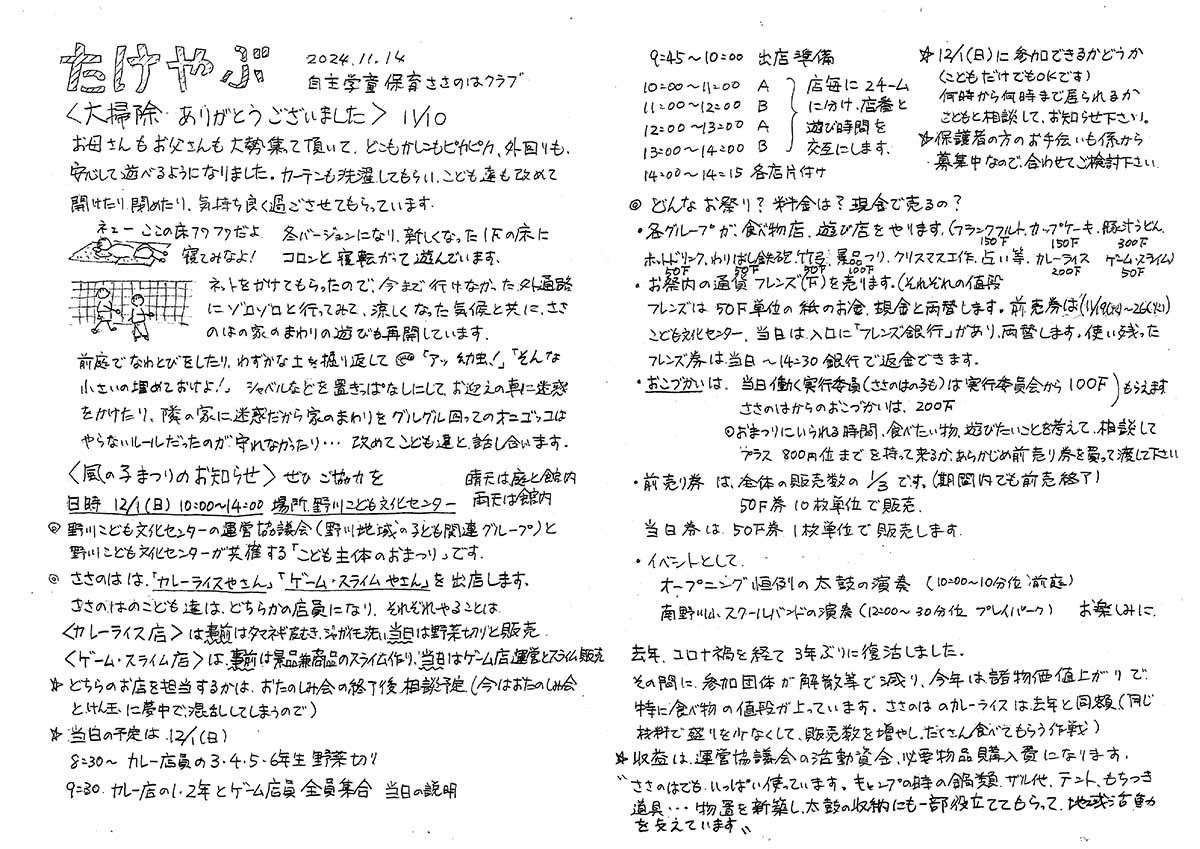 たけやぶ
2024.11.14
自主学童保育ささのはクラブ
〈大掃除 ありがとうございました〉 11/10
お母さんもお父さんも大勢集って頂いて、どこもかしこもピカピカ、外回りも、
安心して遊べるようになりました。カーテンも洗濯してもらい、こども達も改めて
開けたり閉めたり、気持ち良く過ごさせてもらっています。
ネェー ここの床フワフワだよ
寝てみなよ！
冬バージョンになり、新しくなった1Fの床に
コロンと寝転がって遊んでいます。
ネットをかけてもらったので、今まで行けなかった外通路
にゾロゾロと行ってみて、涼しくなった気候と共に、ささ
のはの家のまわりの遊びも再開しています。
前庭でなわとびをしたり、わずかな土を掘り返して「アッ幼虫！」「そんな
小さいの埋めておけよ！」 シャベルなどを置きっぱなしにして、お迎えの車に迷惑
をかけたり、隣の家に迷惑だから家のまわりをグルグル回ってのオニゴッコは
やらないルールだったのが守れなかったり… 改めてこども達と話し合います。
〈風の子まつりのお知らせ〉 ぜひご協力を
晴天は庭と館内
雨天は館内
日時 12/1(日) 10:00〜14:00 場所 野川こども文化センター
◎ 野川こども文化センターの運営協議会（野川地域の子ども関連グループ）と
野川こども文化センターが共催する「こども主体のおまつり」です。
◎ ささのはは、「カレーライスやさん」「ゲーム・スライムやさん」を出店します。
ささのはのこども達は、どちらかの店員になり、それぞれやることは
〈カレーライス店〉は事前はタマネギ皮むき、ジャガイモ洗い、当日は野菜切りと販売
〈ゲーム・スライム店〉は、事前は景品兼商品のスライム作り、当日はゲーム店運営とスライム販売
☆ どちらのお店を担当するかは、おたのしみ会の終了後相談予定（今はおたのしみ会
とけん玉に夢中で、混乱してしまうので）
☆ 当日の予定は 12/1(日)
8:30〜 カレー店員の3・4・5・6年生 野菜切り
9:30. カレー店の1・2年とゲーム店員全員集合 当日の説明
9:45〜10:00 出店準備
10:00〜11:00 A
11:00〜12:00 B
12:00〜13:00 A
13:00〜14:00 B
店毎に2チーム
に分け、店番と
遊び時間を
交互にします。
14:00〜14:15 各店片付け
☆ 12/1(日)に参加できるかどうか
（こどもだけでもOKです）
何時から何時まで居られるか
こどもと相談して、お知らせ下さい。
☆ 保護者の方のお手伝いも係から
募集中なので、合わせてご検討下さい。
◎ どんなお祭り？料金は？現金で売るの？
・各グループが、食べ物店、遊び店をやります。（フランクフルト、カップケーキ、豚汁うどん、
150F 150F 300F
ホットドリンク、わりばし鉄砲、竹弓、景品つり、クリスマス工作、占い等、カレーライス ゲーム・スライム）
50F 50F 50F 100F 200F 50F
・お祭内の通貨フレンズ(F)を売ります。（それぞれの値段
フレンズは50F単位の紙のお金、現金と両替します。前売券は(11/19(火)〜26(火))
こども文化センター、当日は入口に「フレンズ銀行」があり、両替します。使い残った
フレンズ券は当日〜14:30銀行で返金できます。
・おこづかいは、当日働く実行委員（ささのはの子も）は実行委員会から100F
ささのはからのおこづかいは、200F
もらえます
◎おまつりにいられる時間、食べたい物、遊びたいことを考えて、相談して
プラス 800円位までを持って来るか、あらかじめ前売り券を買って渡して下さい
・前売り券は、全体の販売数の1/3です。（期間内でも前売終了）
50F券10枚単位で販売.
当日券は、50F券1枚単位で販売します.
・イベントとして、
オープニング恒例の太鼓の演奏 （10:00〜10分位 前庭）
南野川小スクールバンドの演奏（12:00〜30分位 プレイパーク） お楽しみに.
去年、コロナ禍を経て3年ぶりに復活しました。
その間に、参加団体が解散等で減り、今年は諸物価値上がりで、
特に食べ物の値段が上っています。ささのはのカレーライスは去年と同額（同じ
材料で盛りを少なくして、販売数を増やし、たくさん食べてもらう作戦）
☆ 収益は、運営協議会の活動資金、必要物品購入費になります。
〝ささのはでも、いっぱい使っています。キャンプの時の鍋類、ザル代、テント、もちつき
道具… 物置を新築し、太鼓の収納にも一部役立ててもらって、地域活動
を支えています〟